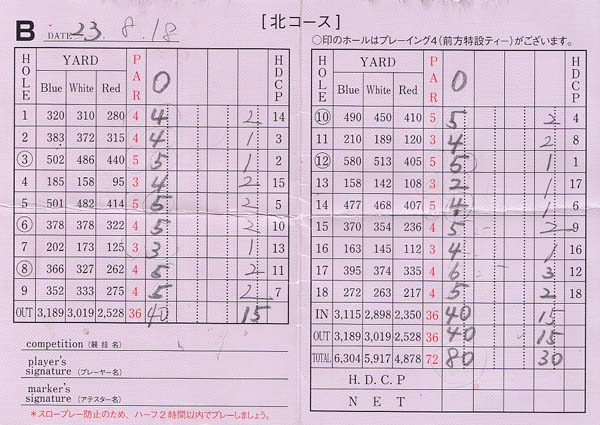 [北コース]
B DATE 23. 8. 18
○印のホールはプレーイング4(前方特設ティー)がございます。
HOLE YARD PAR O HDCP
Blue White Red
1 320 310 280 4 4 2 14
2 383 372 315 4 4 1 3
③ 502 486 440 5 5 1 2
4 185 158 95 3 4 2 15
5 501 482 414 5 5 2 5
⑥ 378 378 322 4 5 2 10
7 202 173 125 3 3 1 13
⑧ 366 327 262 4 5 2 11
9 352 333 275 4 5 2 7
OUT 3,189 3,019 2,528 36 40 15
competition (競技名)
player's
signature (プレーヤー名)
marker's
signature (アテスター名)
*スロープレー防止のため、ハーフ2時間以内でプレーしましょう。
HOLE YARD PAR O HDCP
Blue White Red
⑩ 490 450 410 5 5 2 4
11 210 189 120 3 4 2 8
⑫ 580 513 405 5 5 1 1
13 158 142 108 3 2 1 17
14 477 468 407 5 4 1 6
15 370 354 236 4 5 2 9
16 163 145 112 3 4 1 16
17 395 374 335 4 6 3 12
18 272 263 217 4 5 2 18
IN 3,115 2,898 2,350 36 40 15
OUT 3,189 3,019 2,528 36 40 15
TOTAL 6,304 5,917 4,878 72 80 30
H.D.C.P
N E T